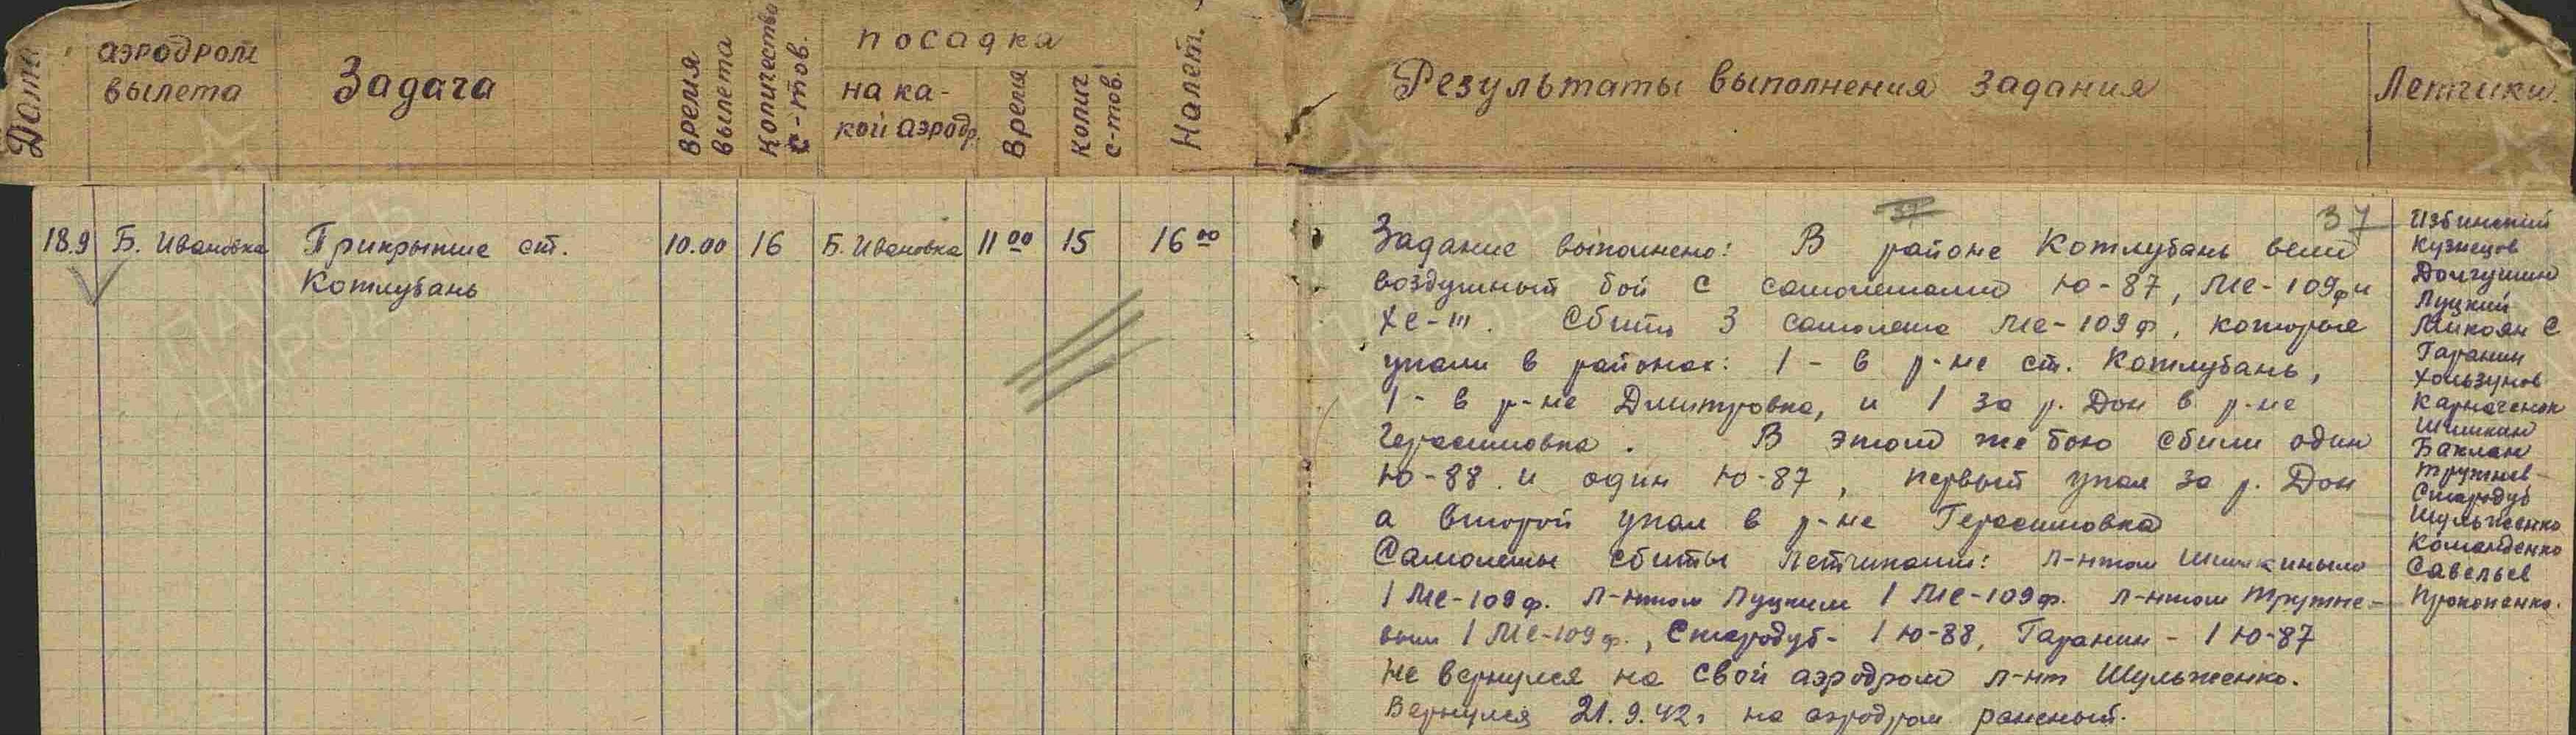 Дата
аэродром вылета
Задача
время вылета
количество с-тов.
посадка
на какой аэродр.
Время
колич с-тов.
Налет.
Результаты выполнения задания
Летчики.
37
18.9 Б. Ивановка Прикрытие ст. 10.00 16 Б. Ивановка 11 00 15 16 00
Котлубань
Задание выполнено: В районе Котлубань вели
воздушный бой с самолетами Ю-87, МЕ-109ф и
ХЕ-III. Сбиты 3 самолета МЕ-109ф, которые
упали в районах: 1 - в р-не ст. Котлубань,
1 - в р-не Дмитровка, и 1 за р. Дон в р-не
Герасимовка. В этом же бою сбили один
Ю-88 и один Ю-87, первый упал за р. Дон
а второй упал в р-не Герасимовка
Самолеты сбиты летчиками: л-нтом Шишкиным
1 МЕ-109ф. л-нтом Луцким 1 МЕ-109ф. л-нтом Трутне-
вым 1 МЕ-109ф., Стародуб - 1 Ю-88, Гаранин - 1 Ю-87
Не вернулся на свой аэродром л-нт Шульженко.
Вернулся 21.9.42г на аэродром раненый.
Избинский
Кузнецов
Долгушин
Луцкий
Микоян С
Гаранин
Хользунов
Карначенок
Шишкин
Баклан
Трутнев
Стародуб
Шульженко
Команденко
Савельев
Прокопенко.
ПАМЯТЬ
НАРОДА